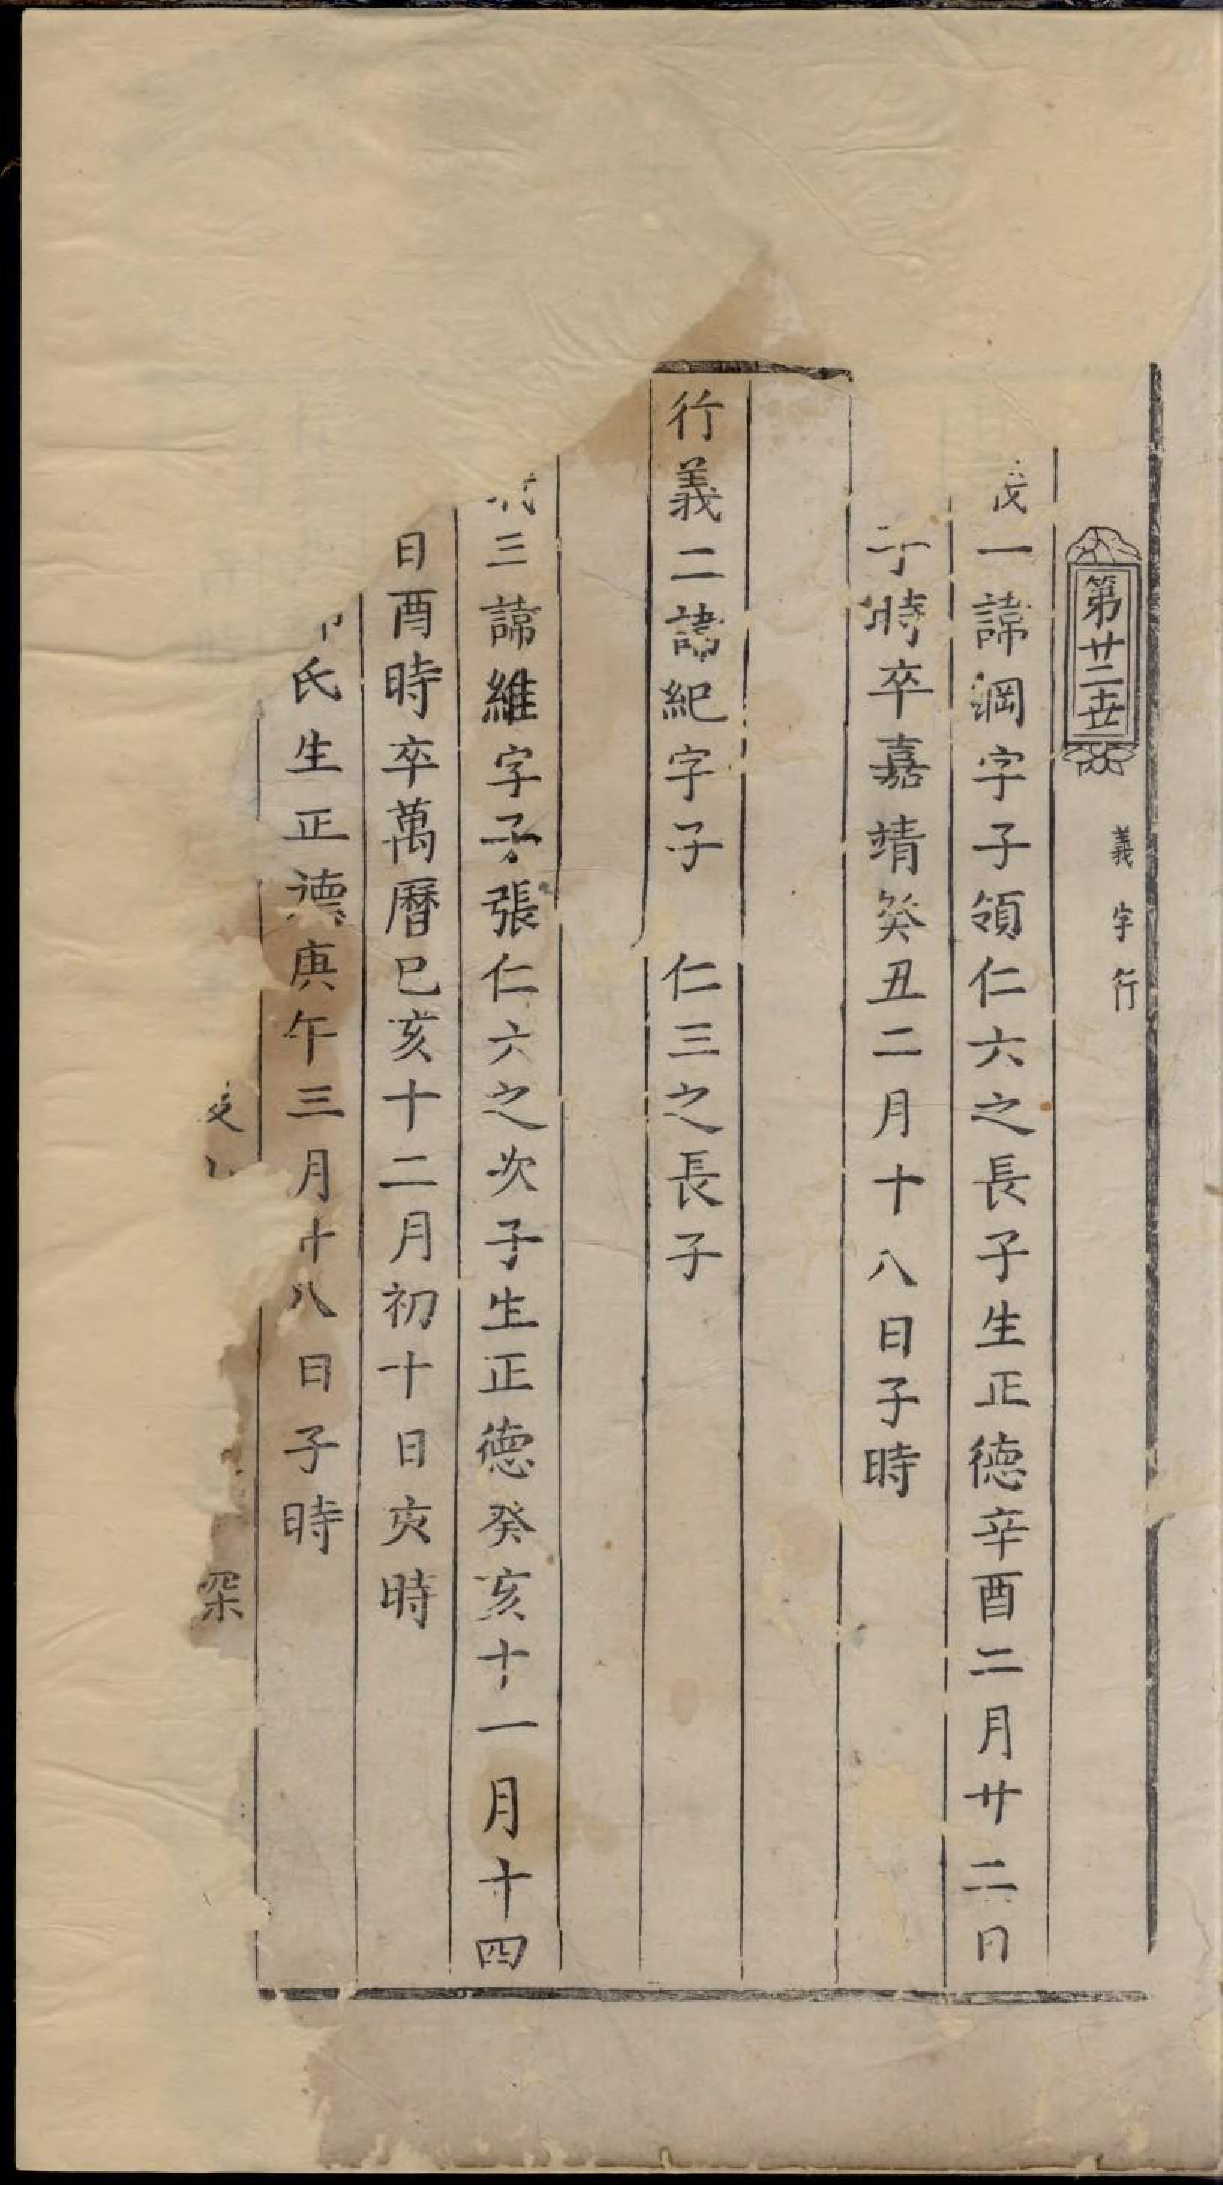 第廿二世
義字行
一諱綱字子領仁六之長子生正德辛酉二月廿二日
子時卒嘉靖癸丑二月十八日子時
行義二諱紀字子 仁三之長子
三諱維字子張仁六之次子生正德癸亥十一月十四
日酉時卒萬曆巳亥十二月初十日亥時
氏生正德庚午三月十八日子時